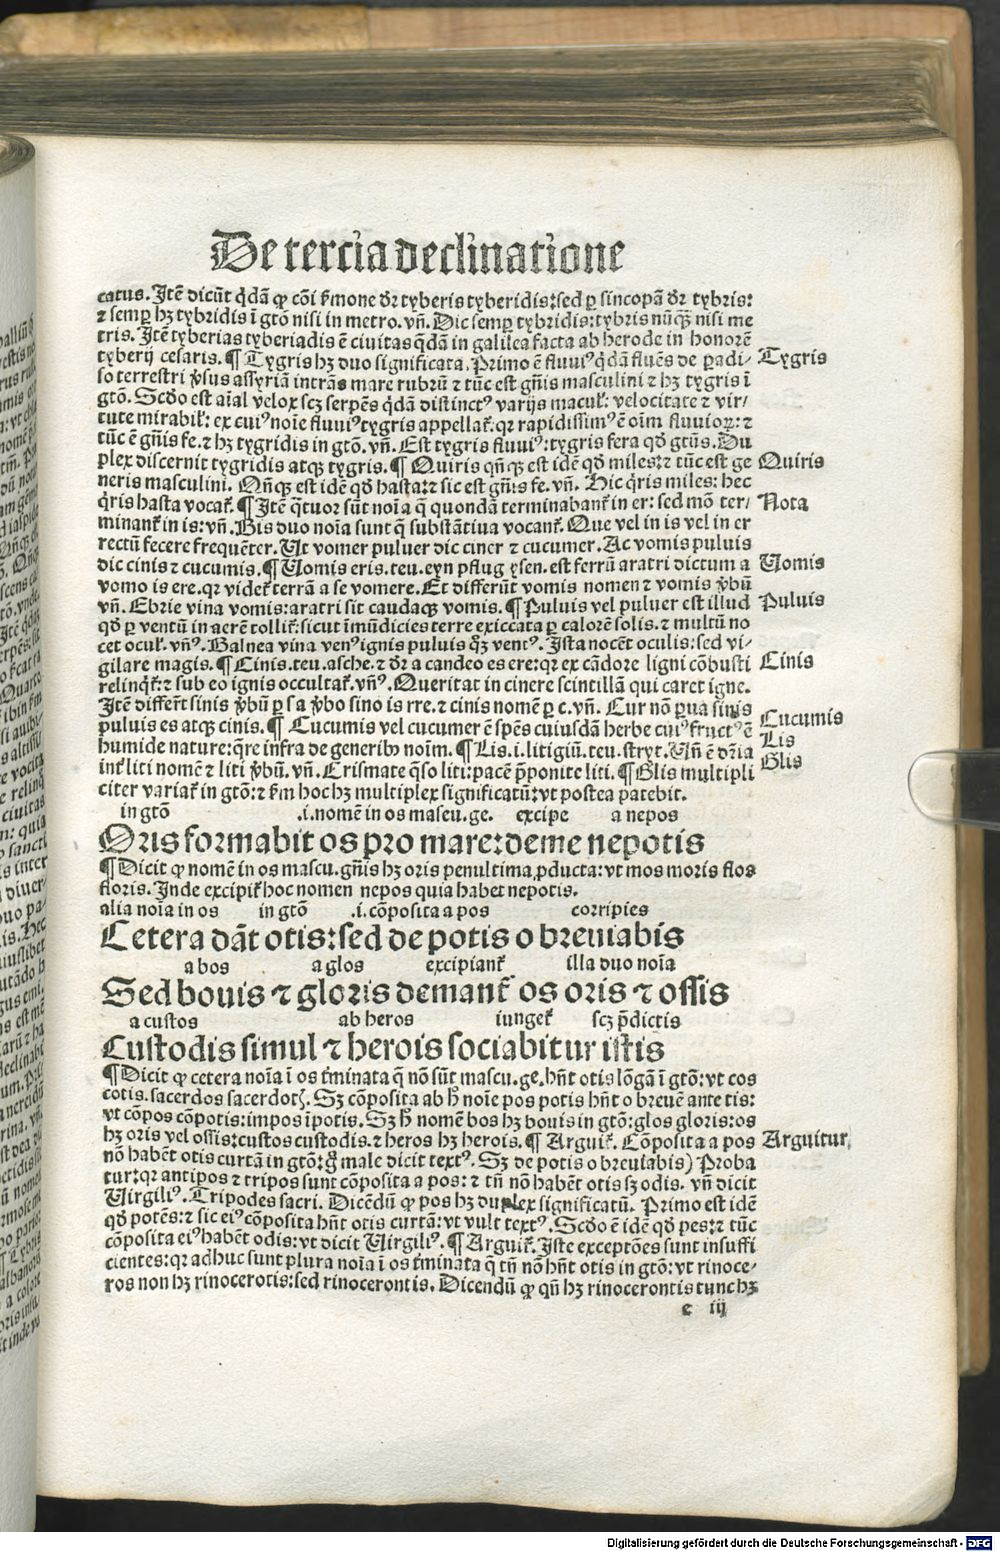 De tercia declinatione
catus. Itē dicūt q̄dā ꝙ cōi ẜmone dr̄ tyberis tyberidis: sed ꝑ sincopā dr̄ tybris:
⁊ semꝑ hꝫ tybridis ī gtō nisi in metro. vñ. Dic semꝑ tybridis: tybris nūqꝫ nisi me
tris. Itē tyberias tyberiadis ē ciuitas q̄dā in galilea facta ab herode in honorē
tyberij cesaris. ¶ Tygris hꝫ duo significata. Primo ē fluuiꝰ q̄dā fluēs de ꝑadi⸗
Tygris
so terrestri v̓sus assyriā intrās mare rubrū ⁊ tūc est gn̄is masculini ⁊ hꝫ tygris ī
gtō. Scdo est aīal velox scꝫ serpēs q̄dā distinctꝰ varijs macul̓: velocitate ⁊ vir⸗
tute mirabil̓: ex cuiꝰ noīe fluuiꝰ tygris appellat̓. qꝛ rapidissimꝰ ē oīm fluuioꝝ: ⁊
tūc ē gn̄is fe. ⁊ hꝫ tygridis in gtō. vñ. Est tygris fluuiꝰ: tygris fera qđ gtūs. Du
plex discernit tygridis atqꝫ tygris. ¶ Quiris qn̄qꝫ est idē qđ miles: ⁊ tūc est ge
Quiris
neris masculini. Qn̄qꝫ est idē qđ hasta: ⁊ sic est gn̄is fe. vñ. Hic q̓ris miles: hec
q̓ris hasta vocat̓. ¶ Itē q̄tuor sūt noīa q̄ quondā terminabant̓ in er: sed mō ter⸗
Nota
minant̓ in is: vñ. Bis duo noīa sunt q̄ substātiua vocant̓. Que vel in is vel in er
rectū fecere frequēter. Ut vomer puluer dic ciner ⁊ cucumer. Ac vomis puluis
dic cinis ⁊ cucumis. ¶ Uomis eris. teu. eyn pflug ysen. est ferrū aratri dictum a
Uomis
vomo is ere. qꝛ videt̓ terrā a se vomere. Et differūt vomis nomen ⁊ vomis v̓bū
vñ. Ebrie vina vomis: aratri sit caudaqꝫ vomis. ¶ Puluis vel puluer est illud
Puluis
qđ ꝑ ventū in aerē tollit̓: sicut īmūdicies terre exiccata ꝑ calorē solis. ⁊ multū no
cet ocul̓. vñꝰ. Balnea vina venꝰ ignis puluis qꝫ ventꝰ. Ista nocēt oculis: sed vi⸗
gilare magis. ¶ Cinis. teu. asche. ⁊ dr̄ a candeo es ere: qꝛ ex cādore ligni cōbusti
Cinis
relinq̓t̓: ⁊ sub eo ignis occultat̓. vñꝰ. Queritat in cinere scintillā qui caret igne.
Itē differt̓ sinis v̓bū ꝑ s a v̓bo sino is rre. ⁊ cinis nomē ꝑ c. vñ. Cur nō ꝑua sinis
puluis es atqꝫ cinis. ¶ Cucumis vel cucumer ē spēs cuiusdā herbe cuiꝰ fructꝰ ē
Cucumis
humide nature: q̄re infra de generibꝰ noīm. ¶ Lis. i. litigiū. teu. stryt. Uñ ē dr̄ia
Lis
int̓ liti nomē ⁊ liti v̓bū. vñ. Crismate q̄so liti: pacē p̄ponite liti. ¶ Glis multipli
Glis
citer variat̓ in gtō: ⁊ ẜm hoc hꝫ multiplex significatū: vt postea patebit.
in gtō .i. nomē in os mascu. ge. excipe a nepos
Oris formabit os pro mare: deme nepotis
¶ Dicit ꝙ nomē in os mascu. gn̄is hꝫ oris penultima ꝓducta: vt mos moris flos
floris. Inde excipit̓ hoc nomen nepos quia habet nepotis.
alia noīa in os in gtō .i. cōposita a pos corripies
Cetera dāt otis: sed de potis o breuiabis
a bos a glos excipiant̓ illa duo noīa
Sed bouis ⁊ gloris demant̓ os oris ⁊ ossis
a custos ab heros iunget̓ scꝫ p̄dictis
Custodis simul ⁊ herois sociabitur istis
¶ Dicit ꝙ cetera noīa ī os t̓minata q̄ nō sūt mascu. ge. hn̄t otis lōgā ī gtō: vt cos
cotis. sacerdos sacerdotꝭ. Sꝫ cōposita ab h̄ noīe pos potis hn̄t o breuē ante tis:
vt cōpos cōpotis: impos īpotis. Sꝫ h̄ nomē bos hꝫ bouis in gtō: glos gloris: os
hꝫ oris vel ossis: custos custodis. ⁊ heros hꝫ herois. ¶ Arguit̓. Cōposita a pos
Arguitur
nō habēt otis curtā in gtō: g̊ male dicit textꝰ. Sꝫ de potis o breuiabis) Proba
tur: qꝛ antipos ⁊ tripos sunt cōposita a pos: ⁊ tn̄ nō habēt otis sꝫ odis. vñ dicit
Uirgiliꝰ. Tripodes sacri. Dicēdū ꝙ pos hꝫ duplex significatū. Primo est idē
qđ potēs: ⁊ sic eiꝰ cōposita hn̄t otis curtā: vt vult textꝰ. Scdo ē idē qđ pes: ⁊ tūc
cōposita eiꝰ habēt odis: vt dicit Uirgiliꝰ. ¶ Arguit̓. Iste exceptōes sunt insuffi
cientes: qꝛ adhuc sunt plura noīa ī os t̓minata q̄ tn̄ nō hn̄t otis in gtō: vt rinoce⸗
ros non hꝫ rinocerotis: sed rinocerontis. Dicendū ꝙ qn̄ hꝫ rinocerontis tunc hꝫ
e iij
Digitalisierung gefördert durch die Deutsche Forschungsgemeinschaft - DFG